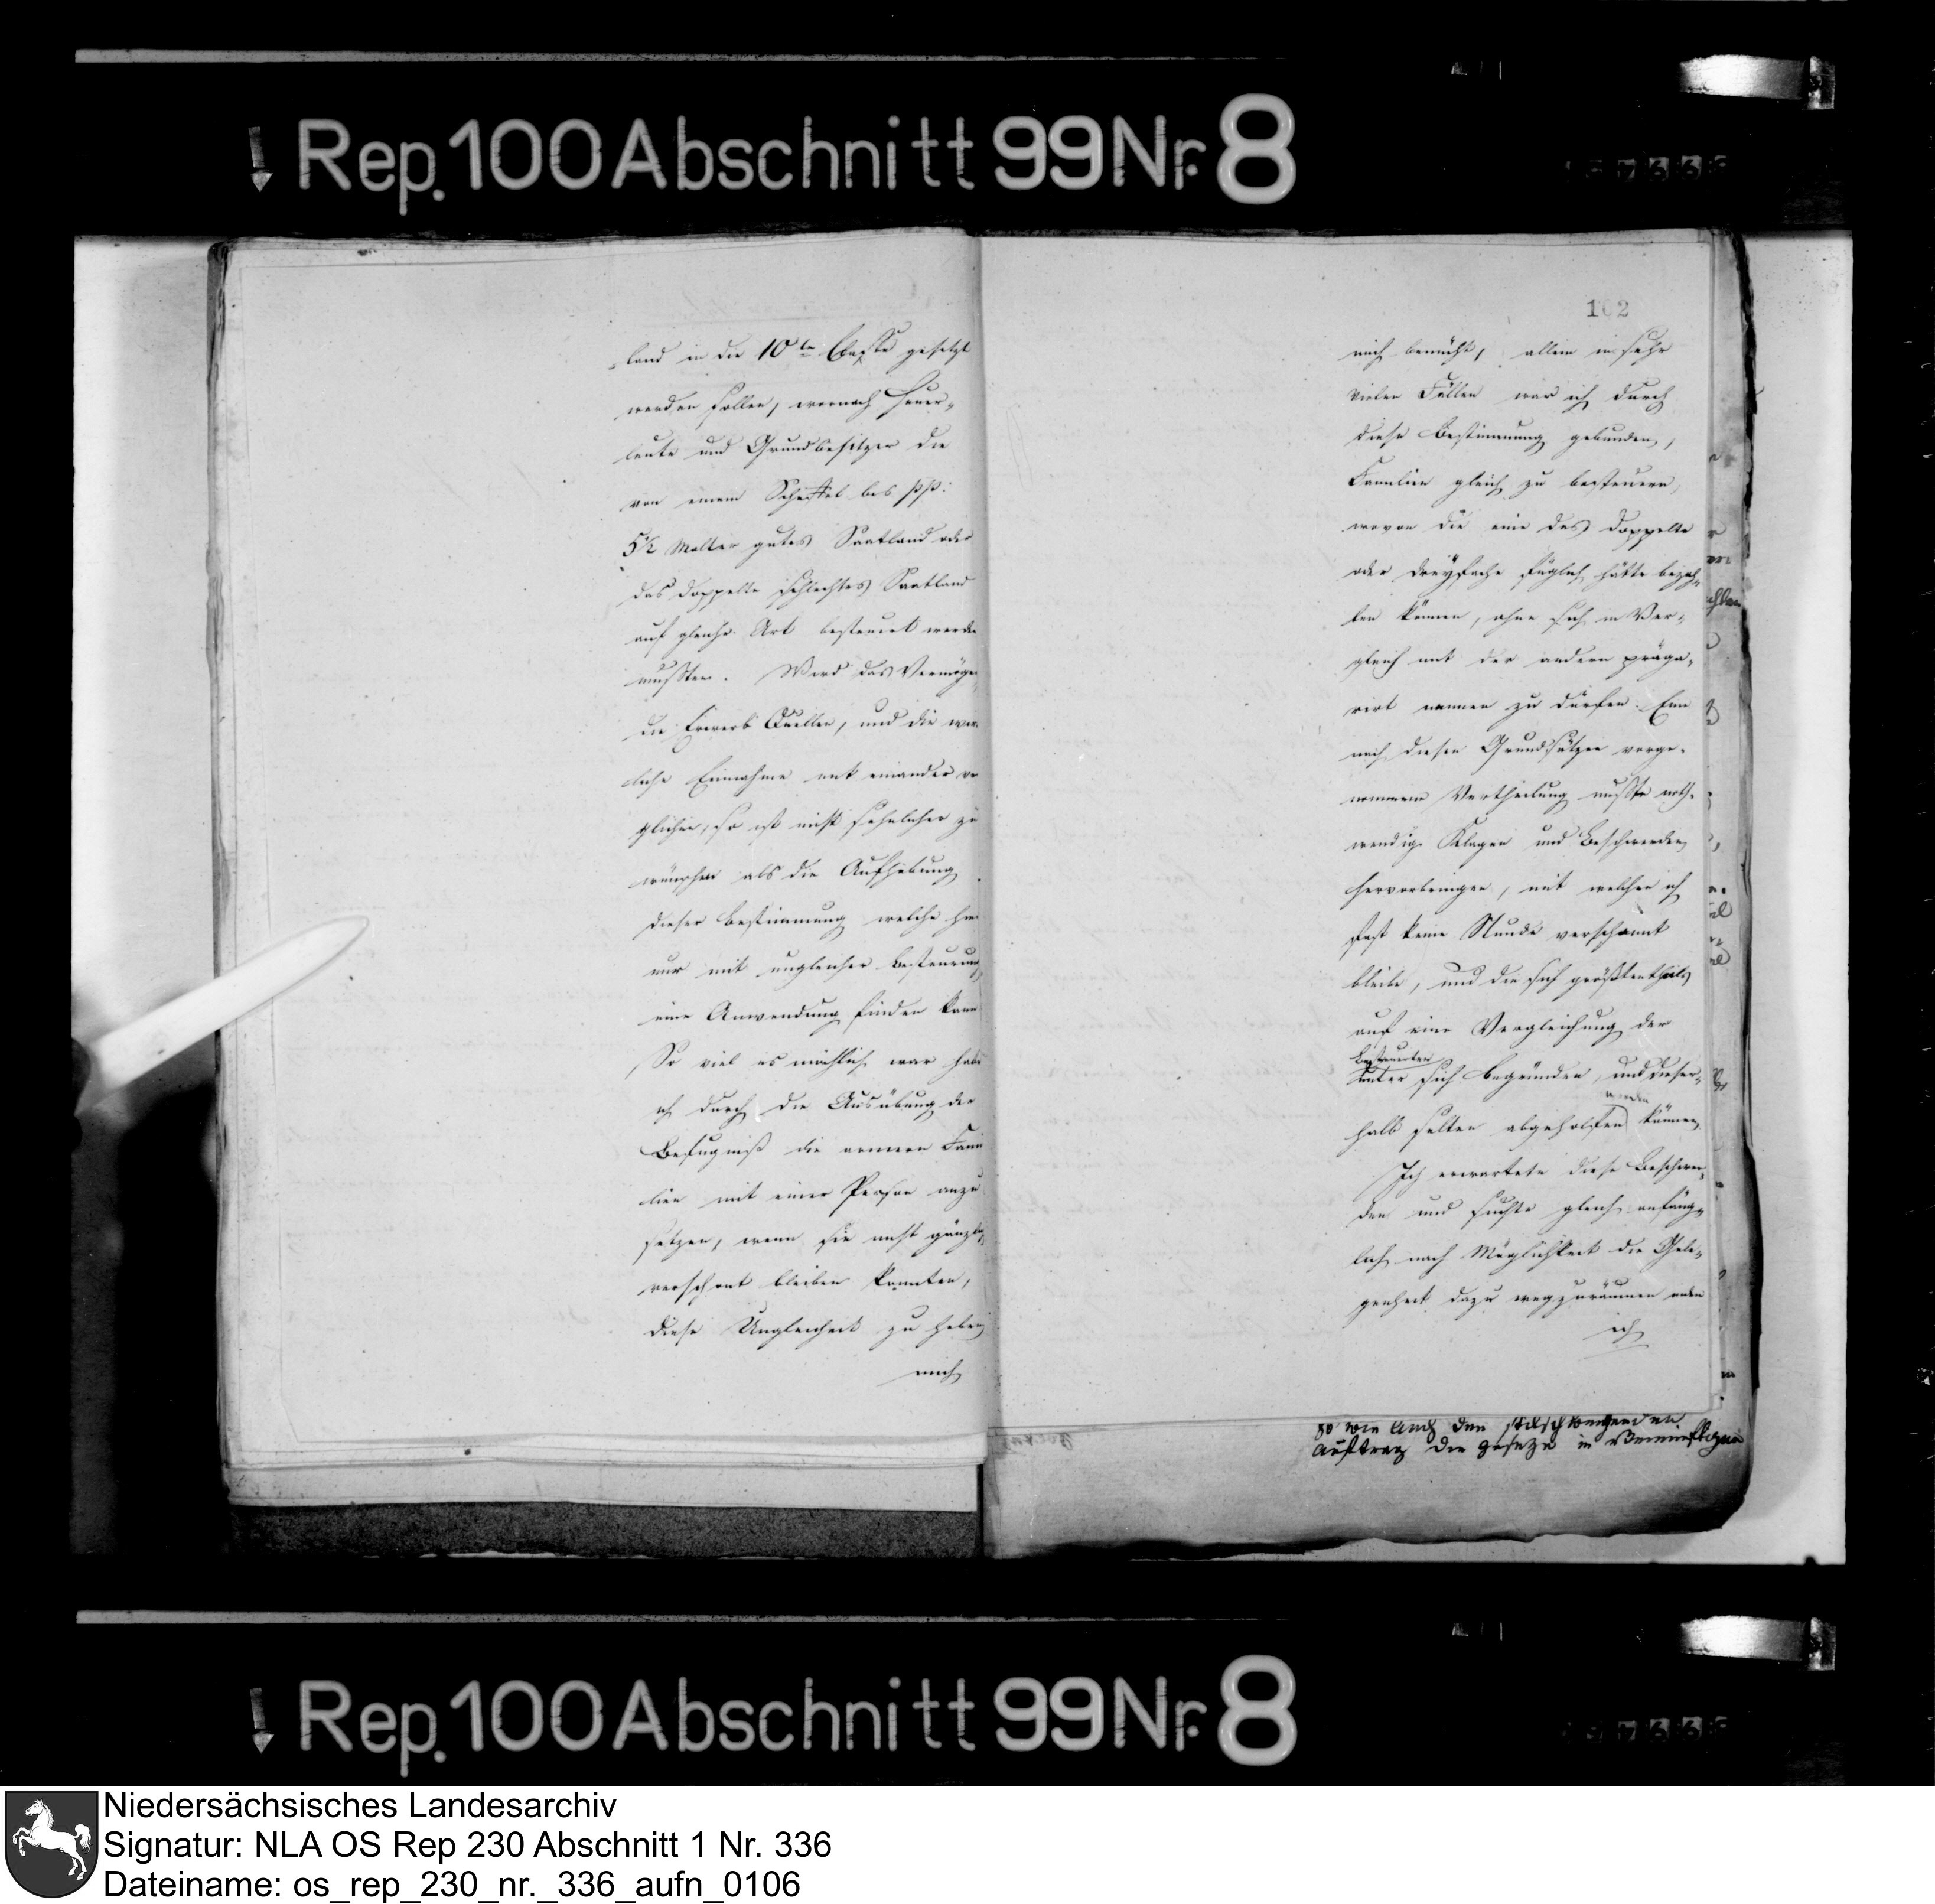 Rep. 100 Abschnitt 99 Nr. 8
land in die 10te Classe gesetzt
werden sollen, wornach Heuer-
leute und Grundbesitzer die
von einem Scheffel bis
5 1/2 Malter gutes Saatland oder
das doppelte schlechtes Saatland
auf gleiche Art besteuert werden
mußten. Wird das Vermögen
die Erwerb Quellen, und die
liche Einnahme mit einander ver
glichen, so ist nicht sehnlicher zu
wünschen als die Aufhebung
dieser Bestimmung welche
nur mit ungleicher Besteurung
eine Anwendung finden kann
So viel es möglich war habe
ich durch die Ausübung der
Befugniß die armern Fami
lien mit einer Person anzu
setzen, wenn sie nicht gänzlich
verschont bleiben konnten,
diese Ungleichheit zu heben
mich
102
mich bemüht, allein in sehr
vielen Fällen war ich durch
diese Bestimmung gebunden,
Familien gleich zu besteuern,
wovon die eine das doppelte
oder dreyfache füglich hätte bezah-
len können, ohne sich in Ver-
gleich mit der andern präga-
virt nennen zu dürfen. Eine
nach diesen Grundsätzen vorge-
nommene Vertheilung mußte noth-
wendig Klagen und Beschwerden
hervorbringen, mit welchen ich
fast keine Stunde verschont
bleibe, und die sich größtentheils
auf eine Vergleichung der
Besteuerten
unter sich begründen, und dieser-
werden
halb selten abgeholfen können
Ich erwartete diese Beschwer-
den und suchte gleich anfäng-
lich nach Möglichkeit die Gele-
genheit dazu wegzuräumen indem
ich
so wie auch den stilschweigenden
auftrag die gesetze in
Rep. 100 Abschnitt 99 Nr. 8
Niedersächsisches Landesarchiv
Signatur: NLA OS Rep 230 Abschnitt 1 Nr. 336
Dateiname: os_rep_230_nr._336_aufn_0106